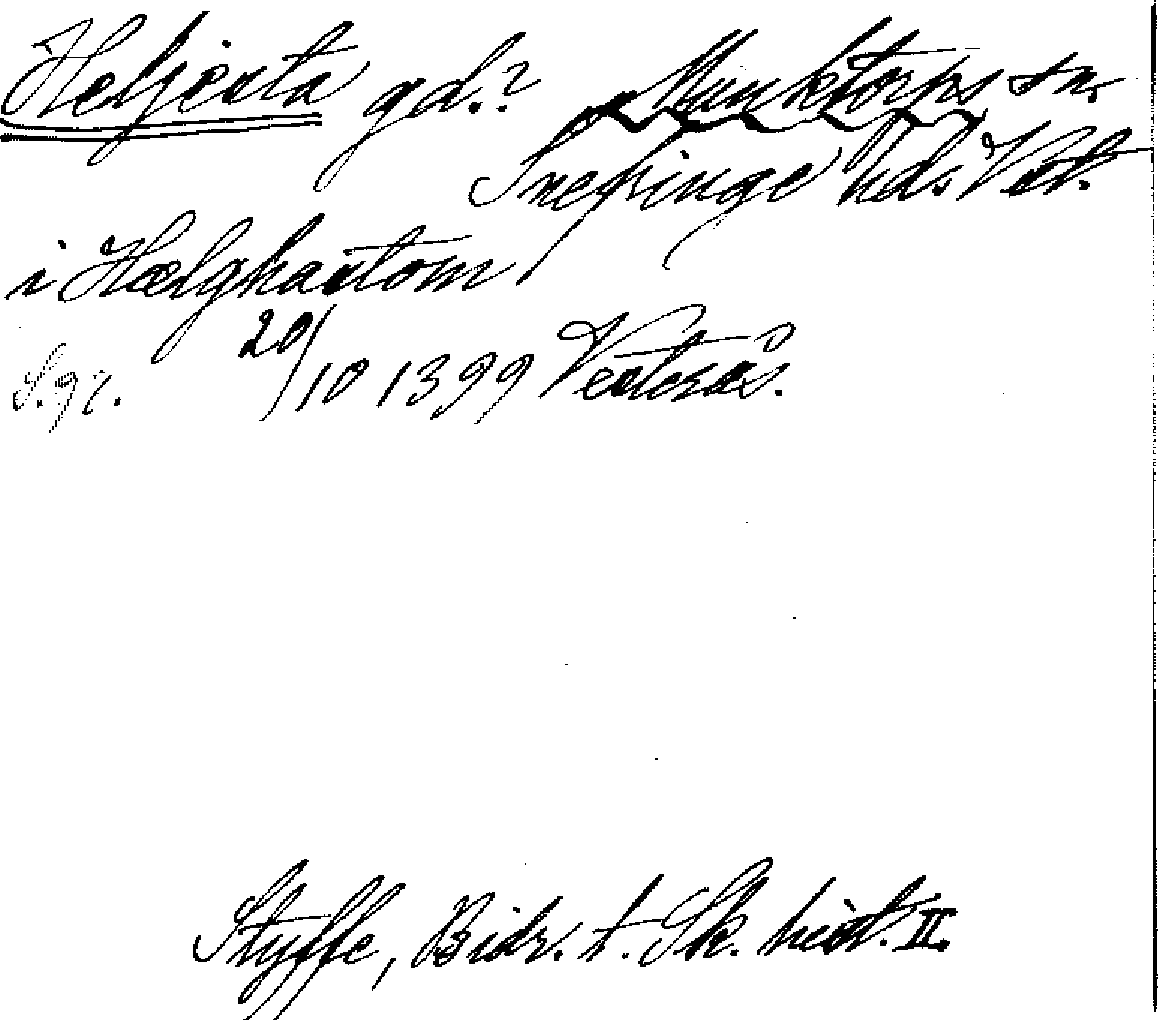 Heljesta gd.? Munktorps sn.
Snefringe hd. Vstl.
i Hælghastom
S. 97. 20/10 1399 Vesterås.
Styffe, Bidr. t. Sk. hist. II.